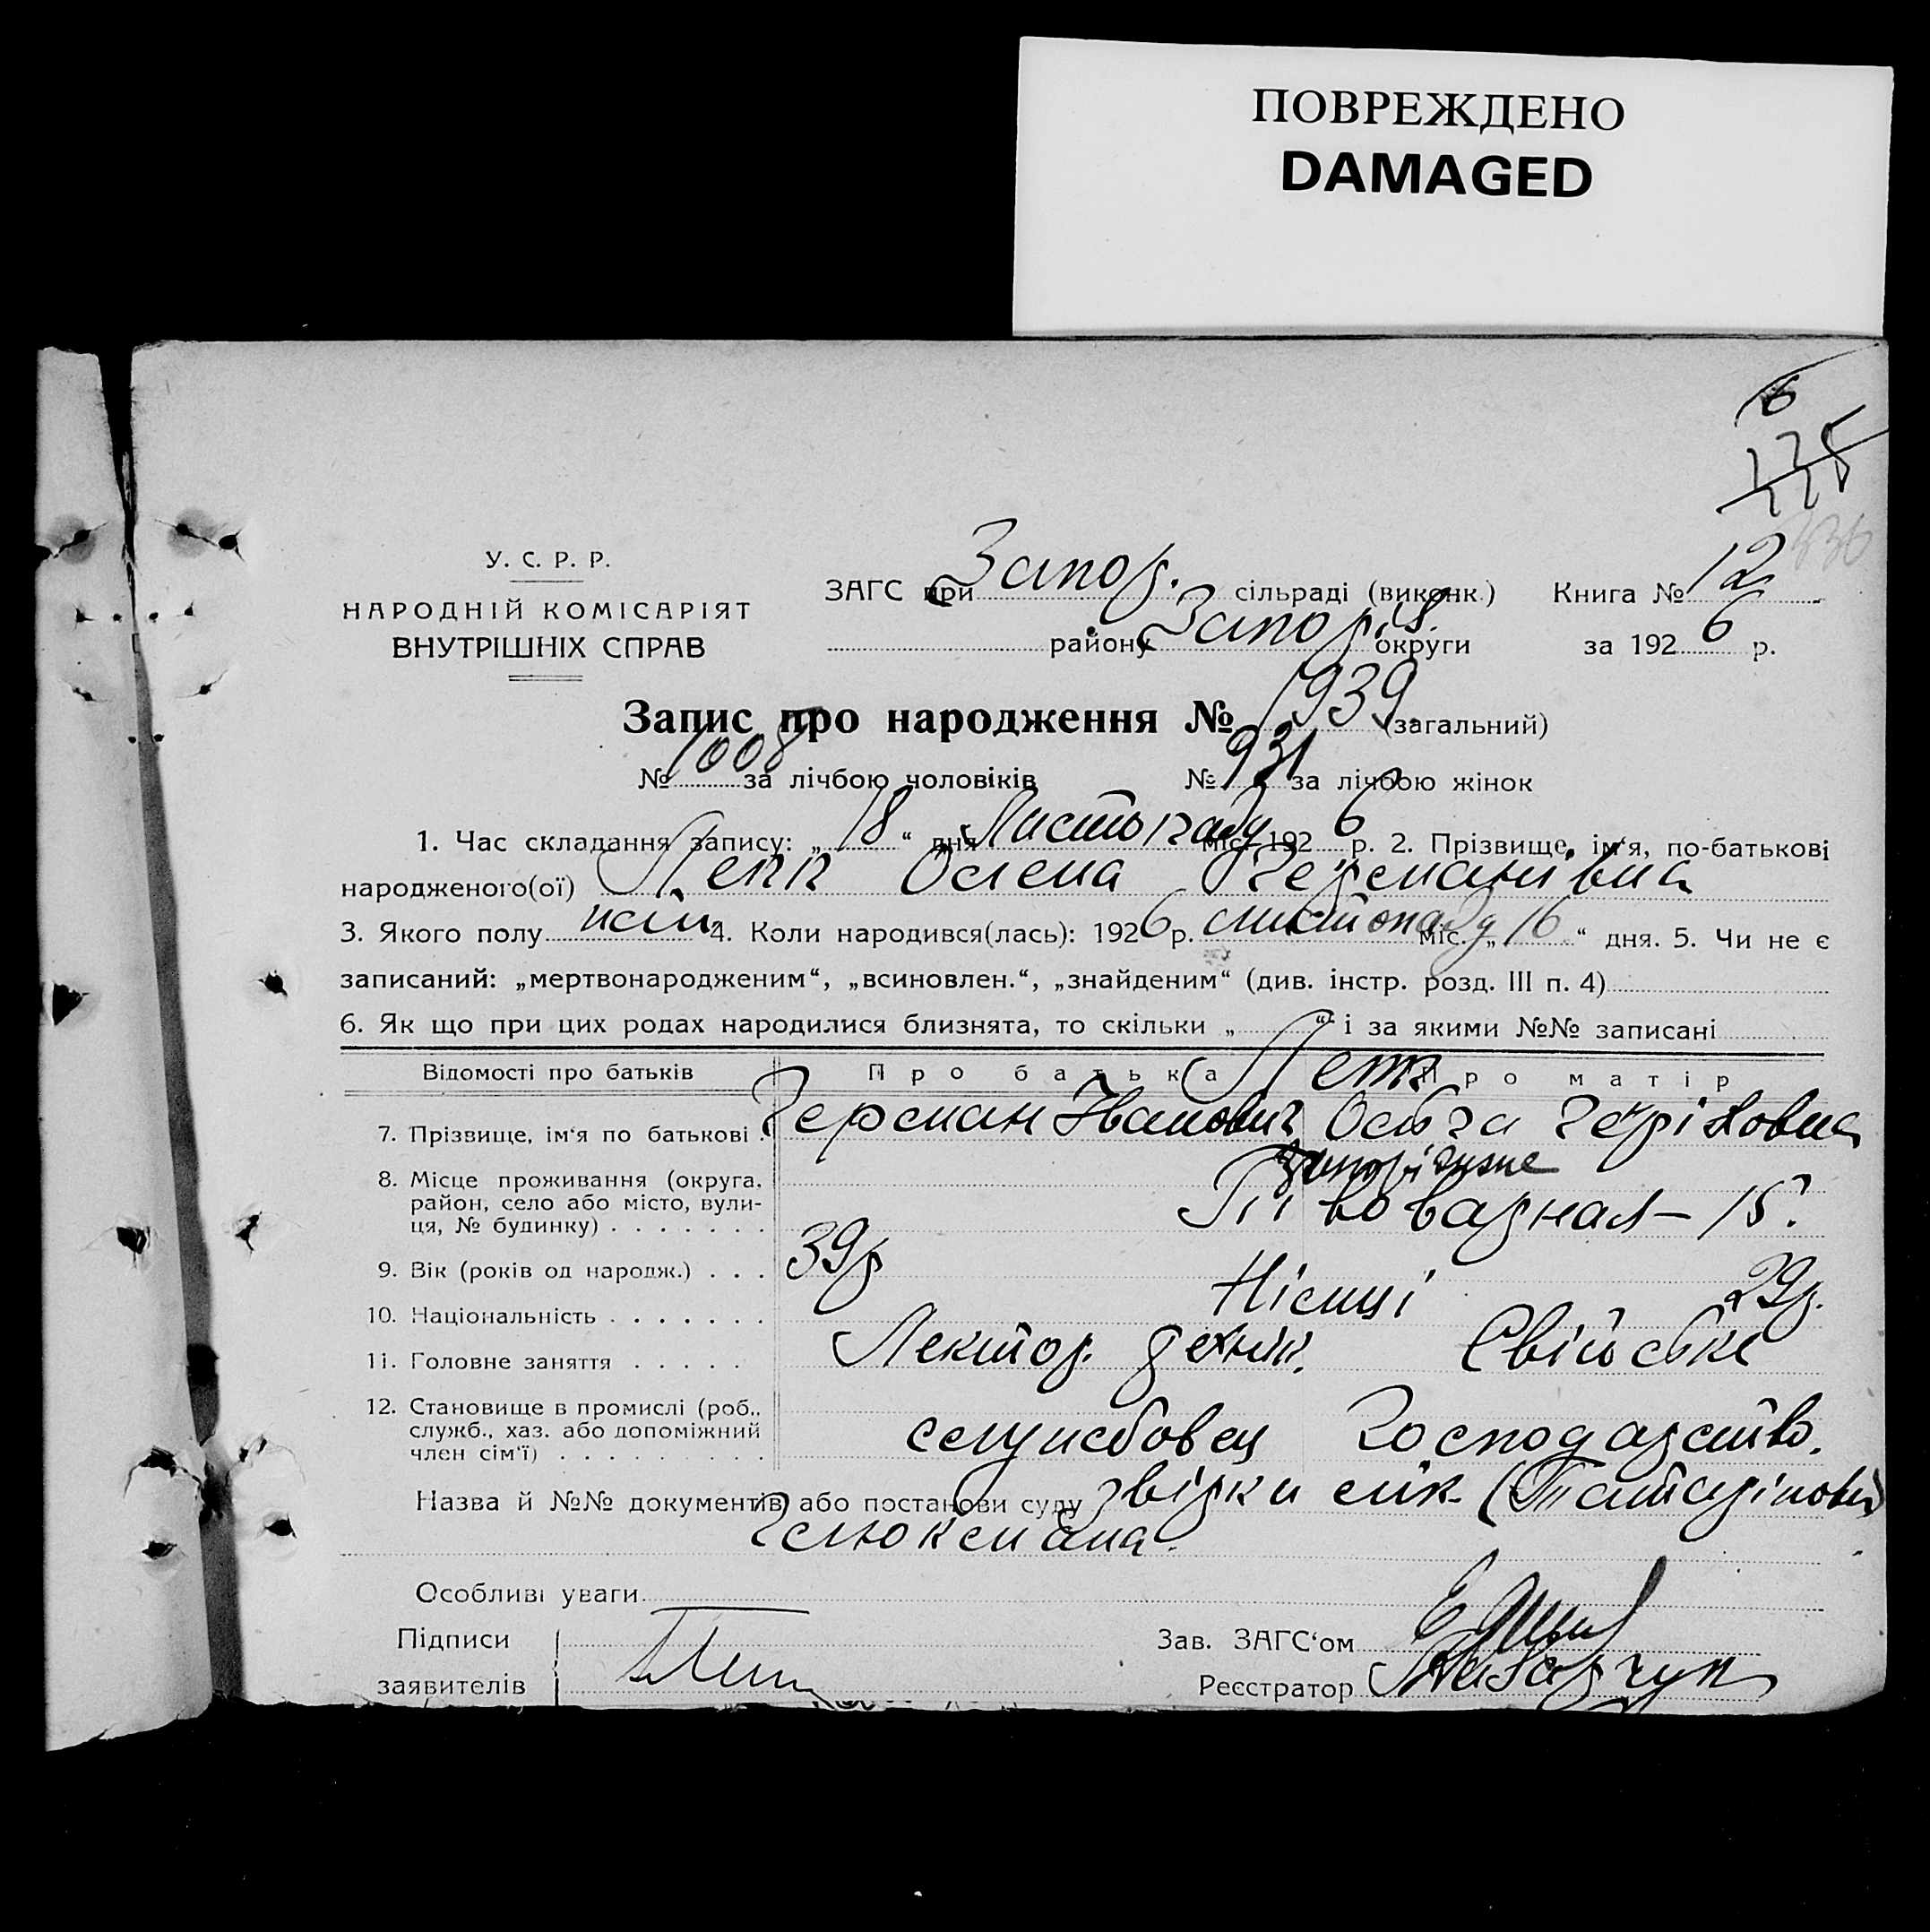 ПОВРЕЖДЕНО
DAMAGED
6
12
У. С. Р. Р.
НАРОДНІЙ КОМІСАРІЯТ
ВНУТРІШНІХ СПРАВ
ЗАГС при Запор. сільраді (виконк.) Книга № 12
району Запоріз. округи за 1926 р.
Запис про народження № 1939 (загальний)
№ 1008 за лічбою чоловіків № 931 за лічбою жінок
1. Час складання запису: „18“ дня Листопаду міс. 1926 р. 2. Прізвище, ім‘я, по-батькові
народженого(ої) Пенк Олена Германівна
3. Якого полу жін. 4. Коли народився(лась): 1926 р. листопаду міс. „16“ дня. 5. Чи не є
записаний: „мертвонародженим“, „всиновлен.“, „знайденим“ (див. інстр. розд. III п. 4)
6. Як що при цих родах народилися близнята, то скільки „ “ і за якими №№ записані
Відомості про батьків Про батька Про матір
7. Прізвище, ім‘я по батькові . Герман Іванович Ольга
8. Місце проживання (округа, район, село або місто, вулиця, № будинку) Запоріжже
Півоварная – 15.
9. Вік (років од народж.) . . . 39 р 29 р.
10. Національність . . . . . . . Німці
11. Головне заняття . . . . . Лектор технік. Свійське
12. Становище в промислі (роб., служб., хаз. або допоміжний член сім‘ї) . . . . . . . . . службовец Господарство.
Назва й №№ документів або постанови суду Довідки лік.
Особливі уваги
Підписи
заявителів
Зав. ЗАГС‘ом
Реєстратор